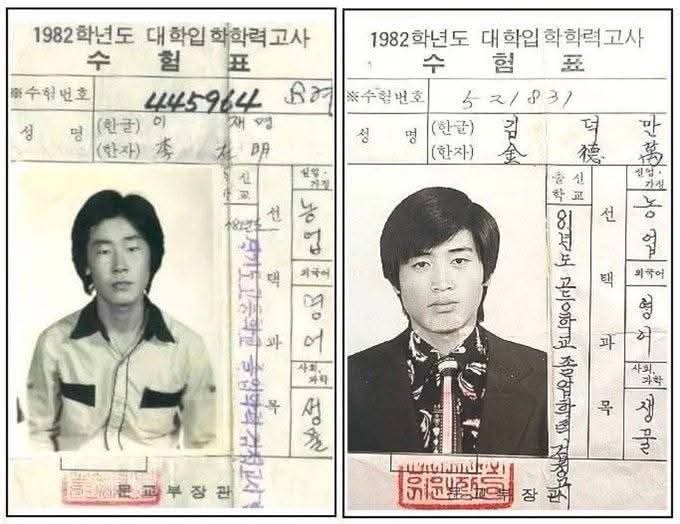 1982학년도 대학입학학력고사
수험표
※수험번호 445964
성명 (한글) 이재명
(한자) 李在明
출신학교
선택과목
실업·가정 농업
외국어 영어
사회,과학 생물
문교부장관
1982학년도 대학입학학력고사
수험표
※수험번호 521831
성명 (한글) 김덕만
(한자) 金德萬
출신학교 81년도 고등학교 졸업학력 검정고시
선택과목
실업·가정 농업
외국어 영어
사회,과학 생물
문교부장관